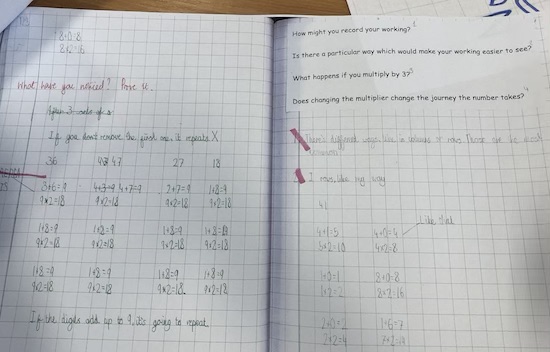 8+0=8
8x2=16
What have you noticed? Prove it.
If you don't remove the first one, it repeats X
36 47 27 18
3+6=9 4+7= 2+7=9 1+8=9
9x2=18 9x2=18 9x2=18 9x2=18
1+8=9 1+8=9 1+8=9 1+8=9
9x2=18 9x2=18 9x2=18 9x2=18
1+8=9 1+8=9 1+8=9 1+8=9
9x2=18 9x2=18 9x2=18 9x2=18
If the digits add up to 9, it's going to repeat.
How might you record your working?
Is there a particular way which would make your working easier to see?
What happens if you multiply by 3?
Does changing the multiplier change the journey the number takes?
There's different ways, like in columns or rows. These can be
I rows, like my way
41
Like that
4+1=5 4+0=4
5x2=10 4x2=8
1+0=1 8+0=8
1x2=2 8x2=16
2+0=2 1+6=7
2x2=4 7x2=14